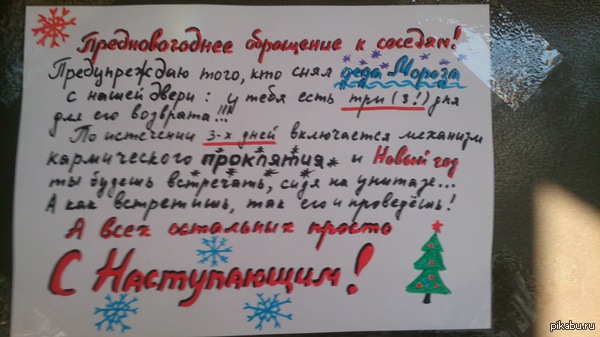 Предновогоднее обращение к соседям!
Предупреждаю того, кто снял деда Мороза
с нашей двери: у тебя есть три (3!) дня
для его возврата...!!!
По истечении 3-х дней включается механизм
кармического проклятия и Новый год
ты будешь встречать, сидя на унитазе...
А как встретишь, так его и проведёшь!
А всех остальных просто
С Наступающим!
pikabu.ru